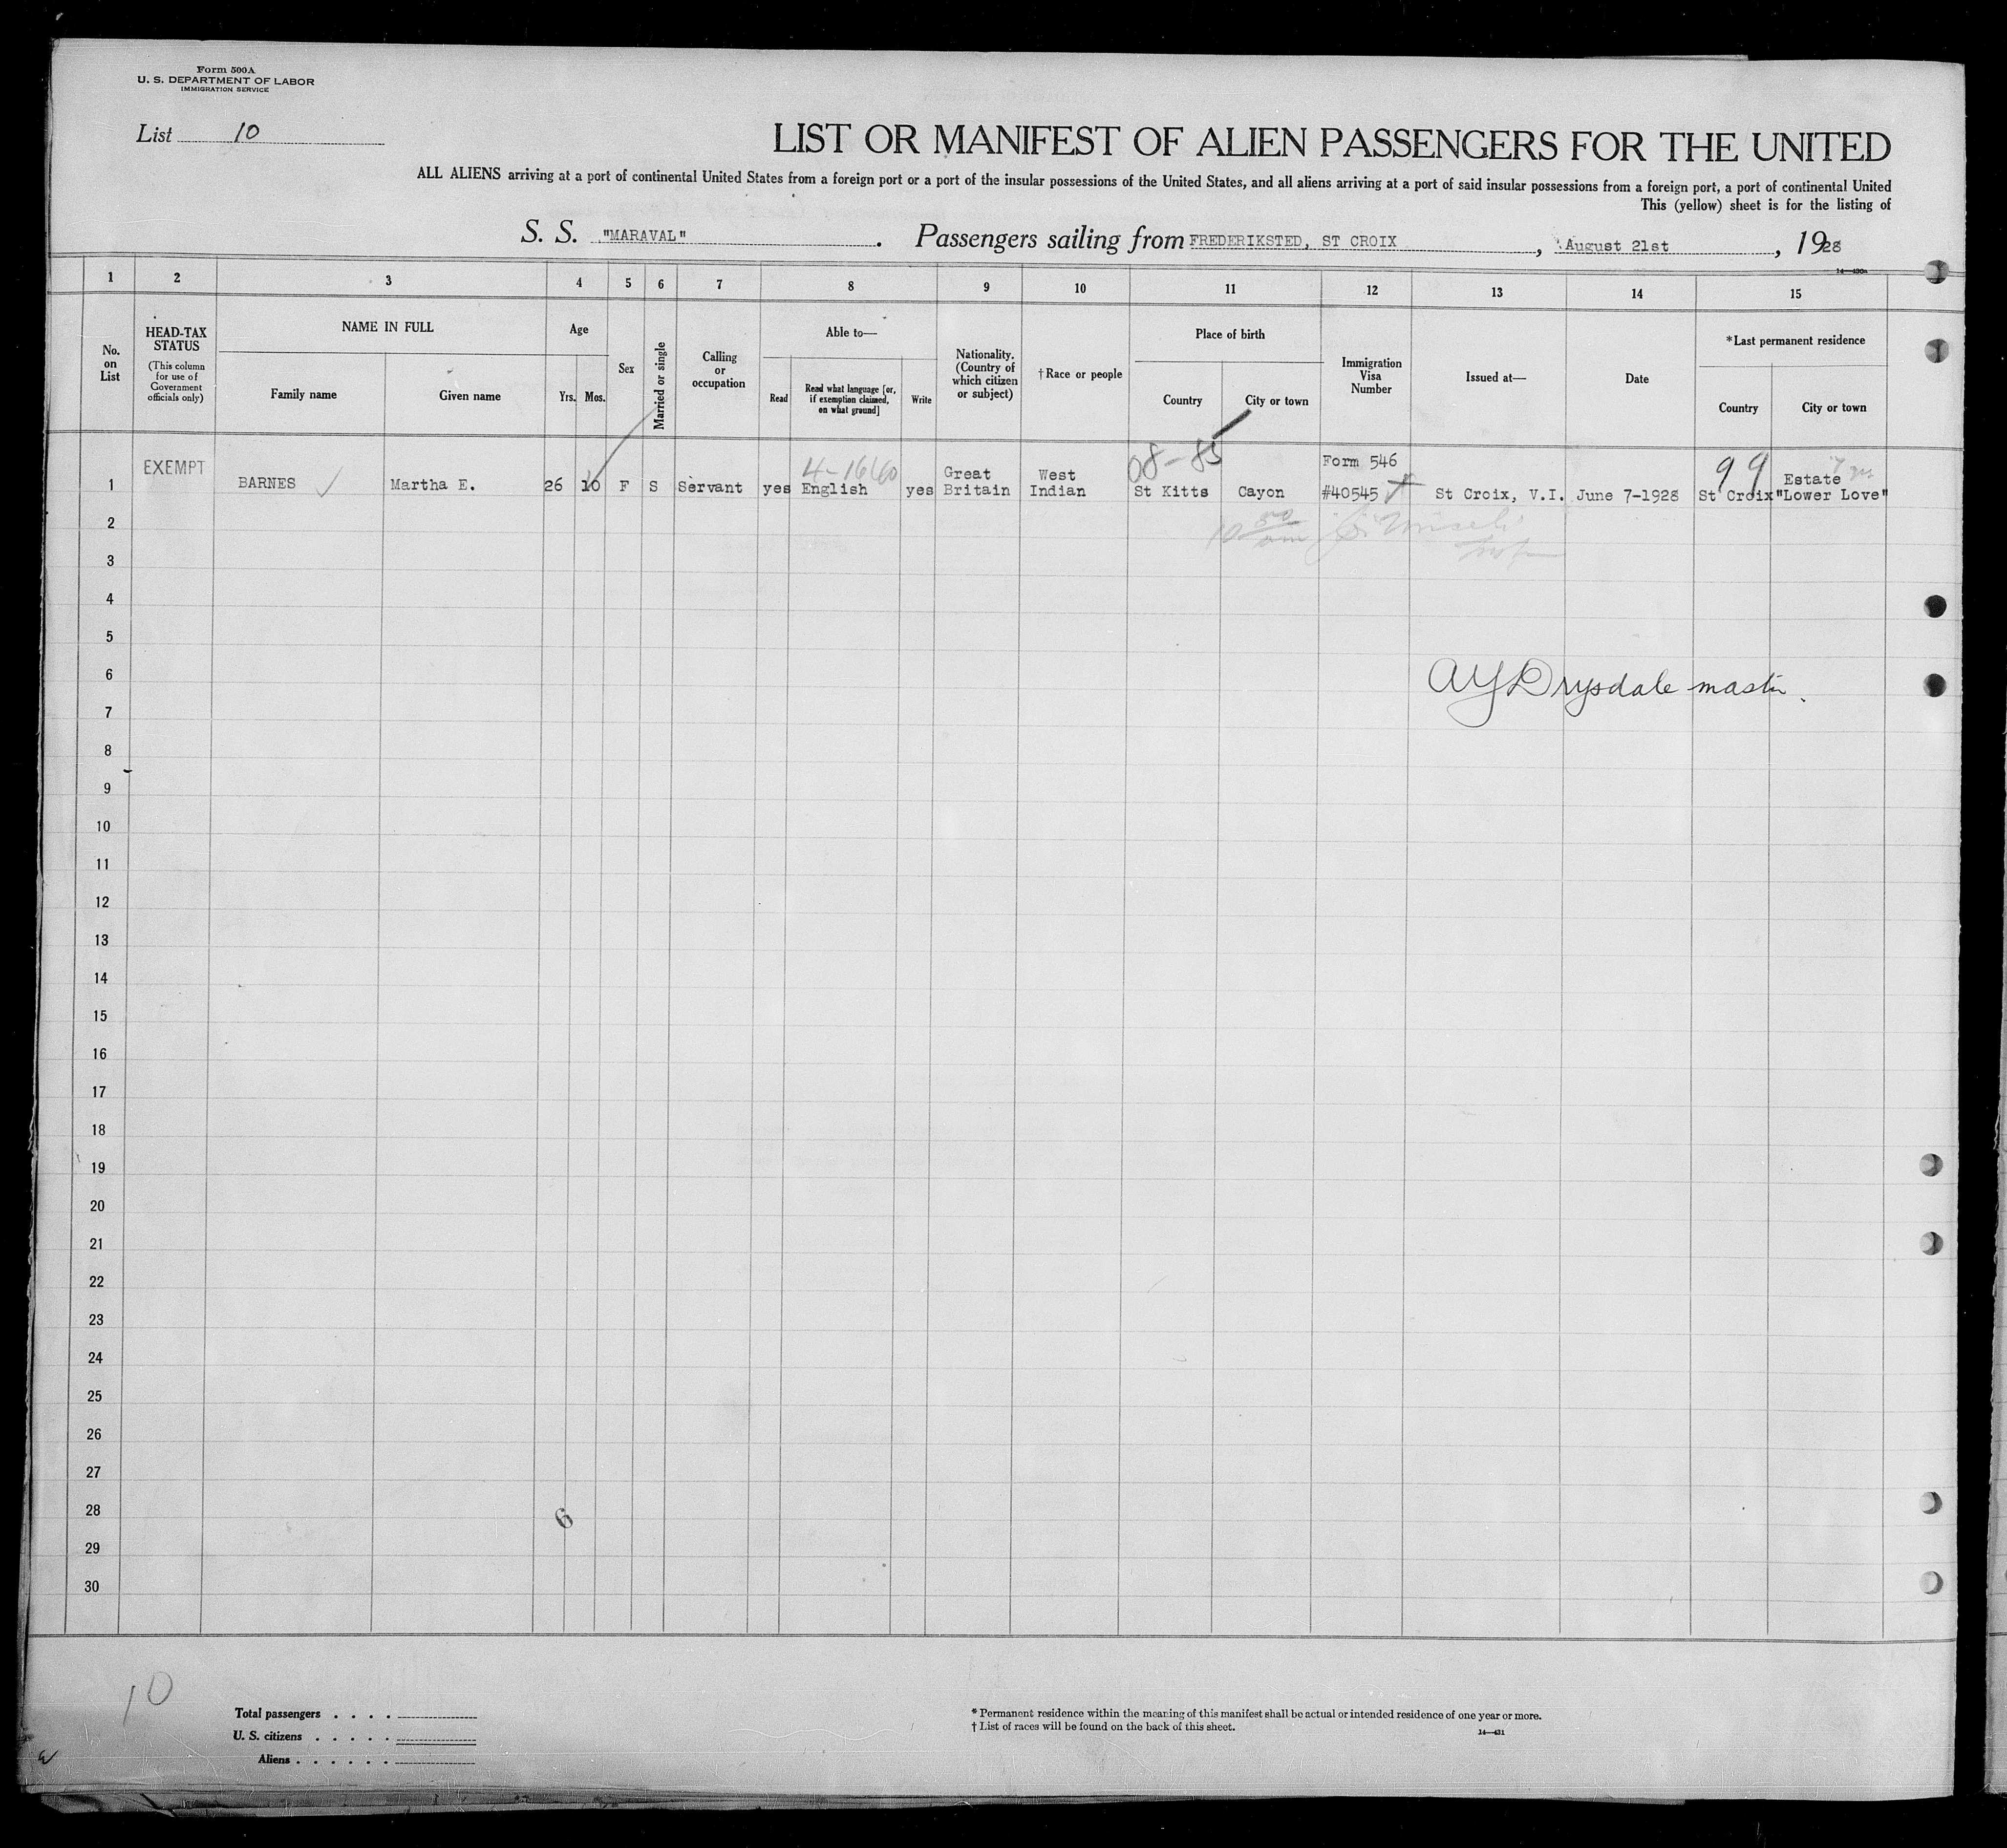 Form 500A
U. S. DEPARTMENT OF LABOR
IMMIGRATION SERVICE
List 10
LIST OR MANIFEST OF ALIEN PASSENGERS FOR THE UNITED
ALL ALIENS arriving at a port of continental United States from a foreign port or a port of the insular possessions of the United States, and all aliens arriving at a port of said insular possessions from a foreign port, a port of continental United
This (yellow) sheet is for the listing of
S. S. "MARAVAL". Passengers sailing from FREDERIKSTED, ST CROIX, August 21st, 1928
14—430a
1 2 3 4 5 6 7 8 9 10 11 12 13 14 15
No. on List
HEAD-TAX STATUS
(This column for use of Government officials only)
NAME IN FULL
Family name
Given name
Age
Yrs. Mos.
Sex
Married or single
Calling or occupation
Able to—
Read
Read what language [or, if exemption claimed, on what ground]
Write
Nationality. (Country of which citizen or subject)
†Race or people
Place of birth
Country
City or town
Immigration Visa Number
Issued at—
Date
*Last permanent residence
Country
City or town
08-85
4-16160
99
1 EXEMPT BARNES Martha E. 26 10 F S Servant yes English yes Great Britain West Indian St Kitts Cayon Form 546 #40545 St Croix, V.I. June 7-1928 St Croix Estate "Lower Love"
2
3
4
5
6
AY Drysdale master.
7
8
9
10
11
12
13
14
15
16
17
18
19
20
21
22
23
24
25
26
27
28
6
29
30
10
Total passengers . . . .
U. S. citizens . . . . .
Aliens . . . . . .
* Permanent residence within the meaning of this manifest shall be actual or intended residence of one year or more.
† List of races will be found on the back of this sheet.
14—431